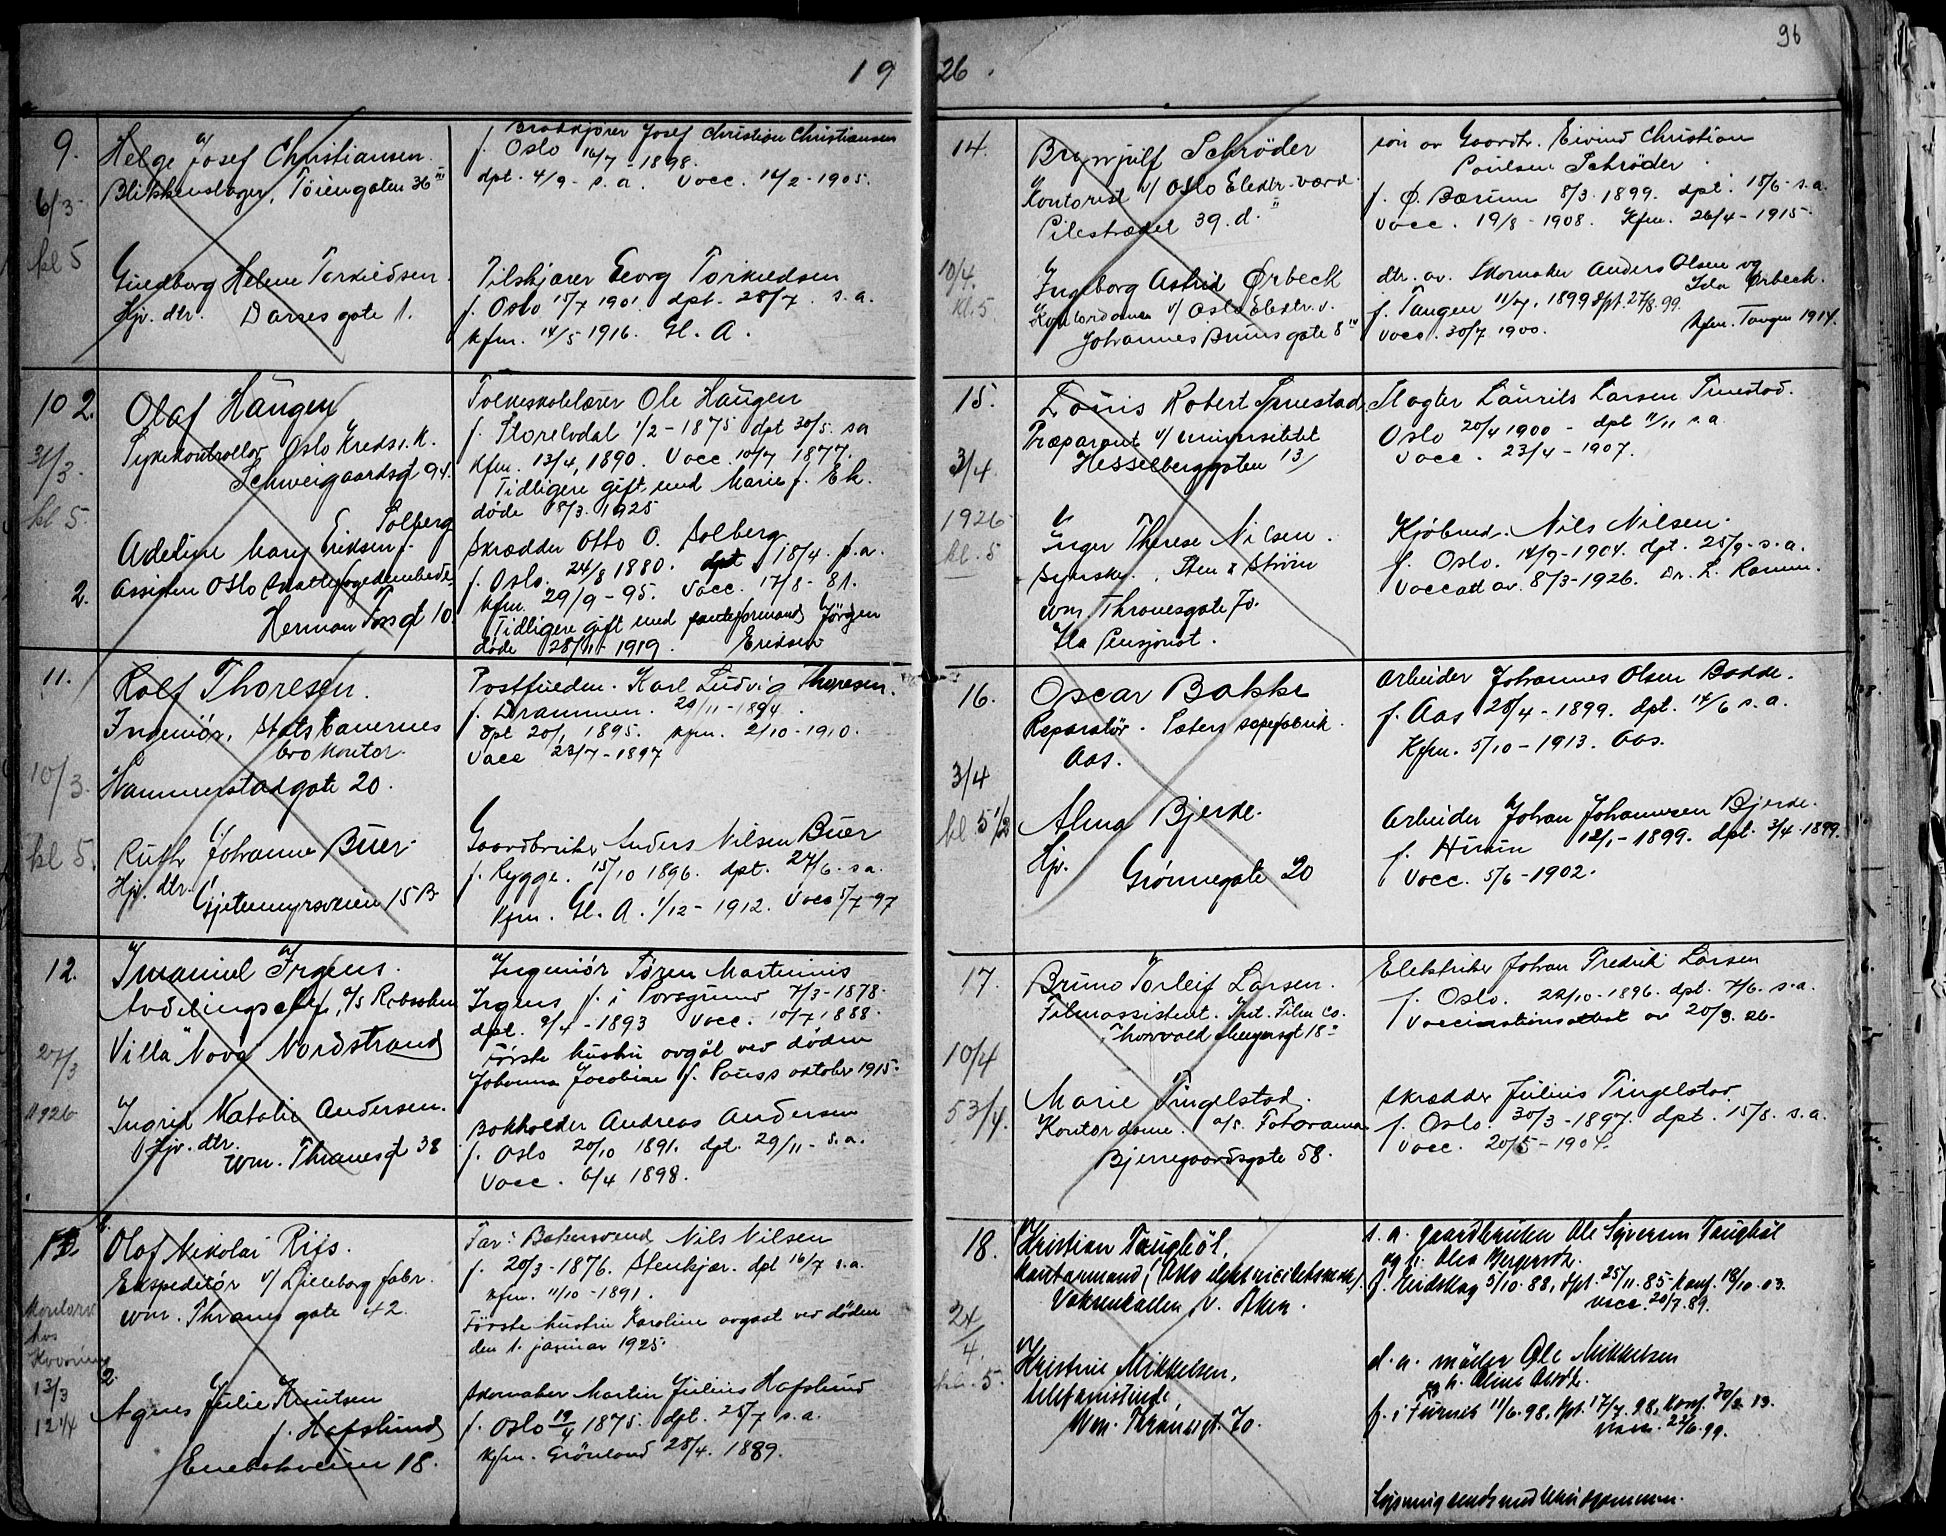 19 26.
96
9.
6/3
kl 5
Helge Josef Christiansen.
Blikkenslager, Töiengaten 36 III
Brødkjører Josef Christian Christiansen
f. Oslo 16/7 - 1898.
dpt. 4/9 - s.a. Vacc. 14/2 - 1905.
Gudborg Helene Torkildsen.
Hjv. dtr. Darres gate 1.
Georg Torkildsen
f. Oslo 15/7 1901. dpt. 28/7. s.a.
Kfm. 14/5 1916. Gl. A.
10
31/3
kl 5.
2. Olaf Haugen
Sykekontrollør Oslo Kreds. K.
Schweigaardsgt 94.
Folkeskolelærer Ole Haugen
f. Storelvdal 1/2 - 1875 dpt 30/5. s.a
Kfm. 13/4, 1890. Vacc. 10/7 1877.
Tidligere gift med Marie f. Ek.
døde 18/3. 1925
2. Adeline Mary Eriksen f. Solberg
Assistent Oslo
Herman Fossgt 10
Skrædder Otto O. Solberg
f. Oslo. 24/8 1880. dpt 18/4. s.a.
Kfm. 29/9 - 95. Vacc. 17/8 - 81.
Tidligere gift med Jørgen
døde 28/11 1919. Eriksen
11.
10/3
kl 5.
Rolf Thoresen.
Ingeniör, Statsbanernes
brokontor.
Hammerstadgate 20.
Karl Ludvig Thoresen.
f. Drammen. 29/11 - 1894.
dpt 20/1 1895. Kfm. 2/10 - 1910.
Vacc 23/7 - 1897
Ruth Johanne Buer
Hjv. dtr. Gjetemyrsveien 15 B
Gaardbruker Anders Nilsen Buer
f. Rygge. 15/10 1896. dpt. 27/6. s.a.
Kfm. Gl. A. 1/12 - 1912. Vacc 5/7 - 97
12.
27/3
1926
Imanuel Irgens.
Avdelingschef, A/S
Villa "Nova" Nordstrand
Ingeniör Sören Martinius
Irgens, f. i Porsgrund 7/3 - 1878.
dpt. 9/4 - 1893 Vacc. 10/7 1888.
Förste hustru avgåt ved døden
Johanna Jacobine f. Pauss oktober 1915.
Ingrid Natalie Andersen.
Hjv. dtr.
Wm. Thranesgt 38
Bokholder Andreas Andersen
f. Oslo 20/10 1891. dpt. 29/11 - s.a.
Vacc. 6/4 1898.
13.
13/3
12 1/4
2. Olaf Nikolai Riis.
Ekspeditör v/ Lilleborg fabr.
Wm. Thranes gate 42.
Far: Nils Nilsen
f. 20/3 - 1876. Stenkjær. dpt 16/7 s.a.
Kfm. 11/10 - 1891.
Förste hustru Karoline avgaat ved döden
den 1. januar 1925.
2. Agnes Julie Knutsen
f. Hafslund
Enebakveien 18.
Skomaker Martin Julius Hafslund
f. Oslo 19/4 1875. dpt. 25/7 s.a.
Kfm. Grönland 28/4. 1889.
14.
10/4.
kl. 5
Brynjulf Schröder
Kontorist v/ Oslo Elektr. værk.
Pilestrædet 39. d. II
sön av Gaardbr. Eivind Christian
Poulsen Schröder.
f. Ø. Bærum 8/3 - 1899. dpt. 18/6 - s.a.
Vacc. 19/8 - 1908. Kfm. 26/4 - 1915.
Ingeborg Astrid Ørbeck
Kontordame v/ Oslo Elektr. v.
Johannes Bruns gate 8 IV
dtr. av. Skomaker Anders Olsen og
Ida Ørbeck.
f. Tangen 11/7, 1899 dpt. 27/8. 99.
Vacc. 30/7 1900. Kfm. Tangen 1914.
15.
3/4
1926
kl. 5
Louis Robert Tuestad
Præparant v/ universitetet
Hesselberggaten 13
Slagter Laurits Larsen Tuestad.
Oslo 20/4 1900 - dpt 11/11 s.a
Vacc. 23/4 - 1907.
Inger Therese Nilsen.
Syerske. Sten & Ström
Wm. Thranesgate 70.
Ila Pensjonat.
Kjøbmd. Nils Nilsen.
f. Oslo. 14/9 - 1904. dpt. 25/9 - s.a.
Vaccatt av. 8/3 - 1926. Dr. L. Ramm.
16.
3/4
kl. 5 1/2
Oscar Bakke
Reparatör. Sæters sæpefabrik.
Aas.
Arbeider Johannes Olsen
f. Aas 28/4 - 1899. dpt. 14/6 s.a.
Kfm. 5/10 - 1913. Aas.
Alma Bjerde.
Hjv. Grönnegate 20
Arbeider Johan Johannesen Bjerde.
f. Hurum 12/1 - 1899. dpt. 3/4 - 1899.
Vacc. 5/6 - 1902.
17.
10/4
5 3/4.
Bruno Torleif Larsen.
Filmassistent. Int. Film Co.
Thorvald Meyersgt 18
Elektriker Johan Fredrik Larsen
f. Oslo. 22/10 - 1896. dpt. 7/6. s.a.
Vaccinationsattest av 20/3. 26.
Marie Tingelstad.
Kontordame. A/S. Fotorama
Bjerregaardsgate 58.
Skrædder Julius Tingelstad.
f. Oslo. 30/3 - 1897. dpt. 15/8. s.a.
Vacc. 20/5 - 1904.
18.
24/4.
kl. 5.
Kristian Taugböl,
kontormand i Oslo elektricitetsverk,
Voksenkollen V. Aker.
s. a. gaardbruker Ole Syversen Taugböl
og h. Olea
f. Eidskog 5/10. 88, dpt. 25/11. 85. konf. 18/10. 03.
vacc. 20/7. 89.
Kristine Mikkelsen,
telefonistinde
Wm. Thranesgt. 70.
d. a. møller Ole Mikkelsen
og h.
f. i Furnes 11/6. 98, dpt. 17/7. 98, konf. 30/3. 13.
vacc. 22/6. 99.